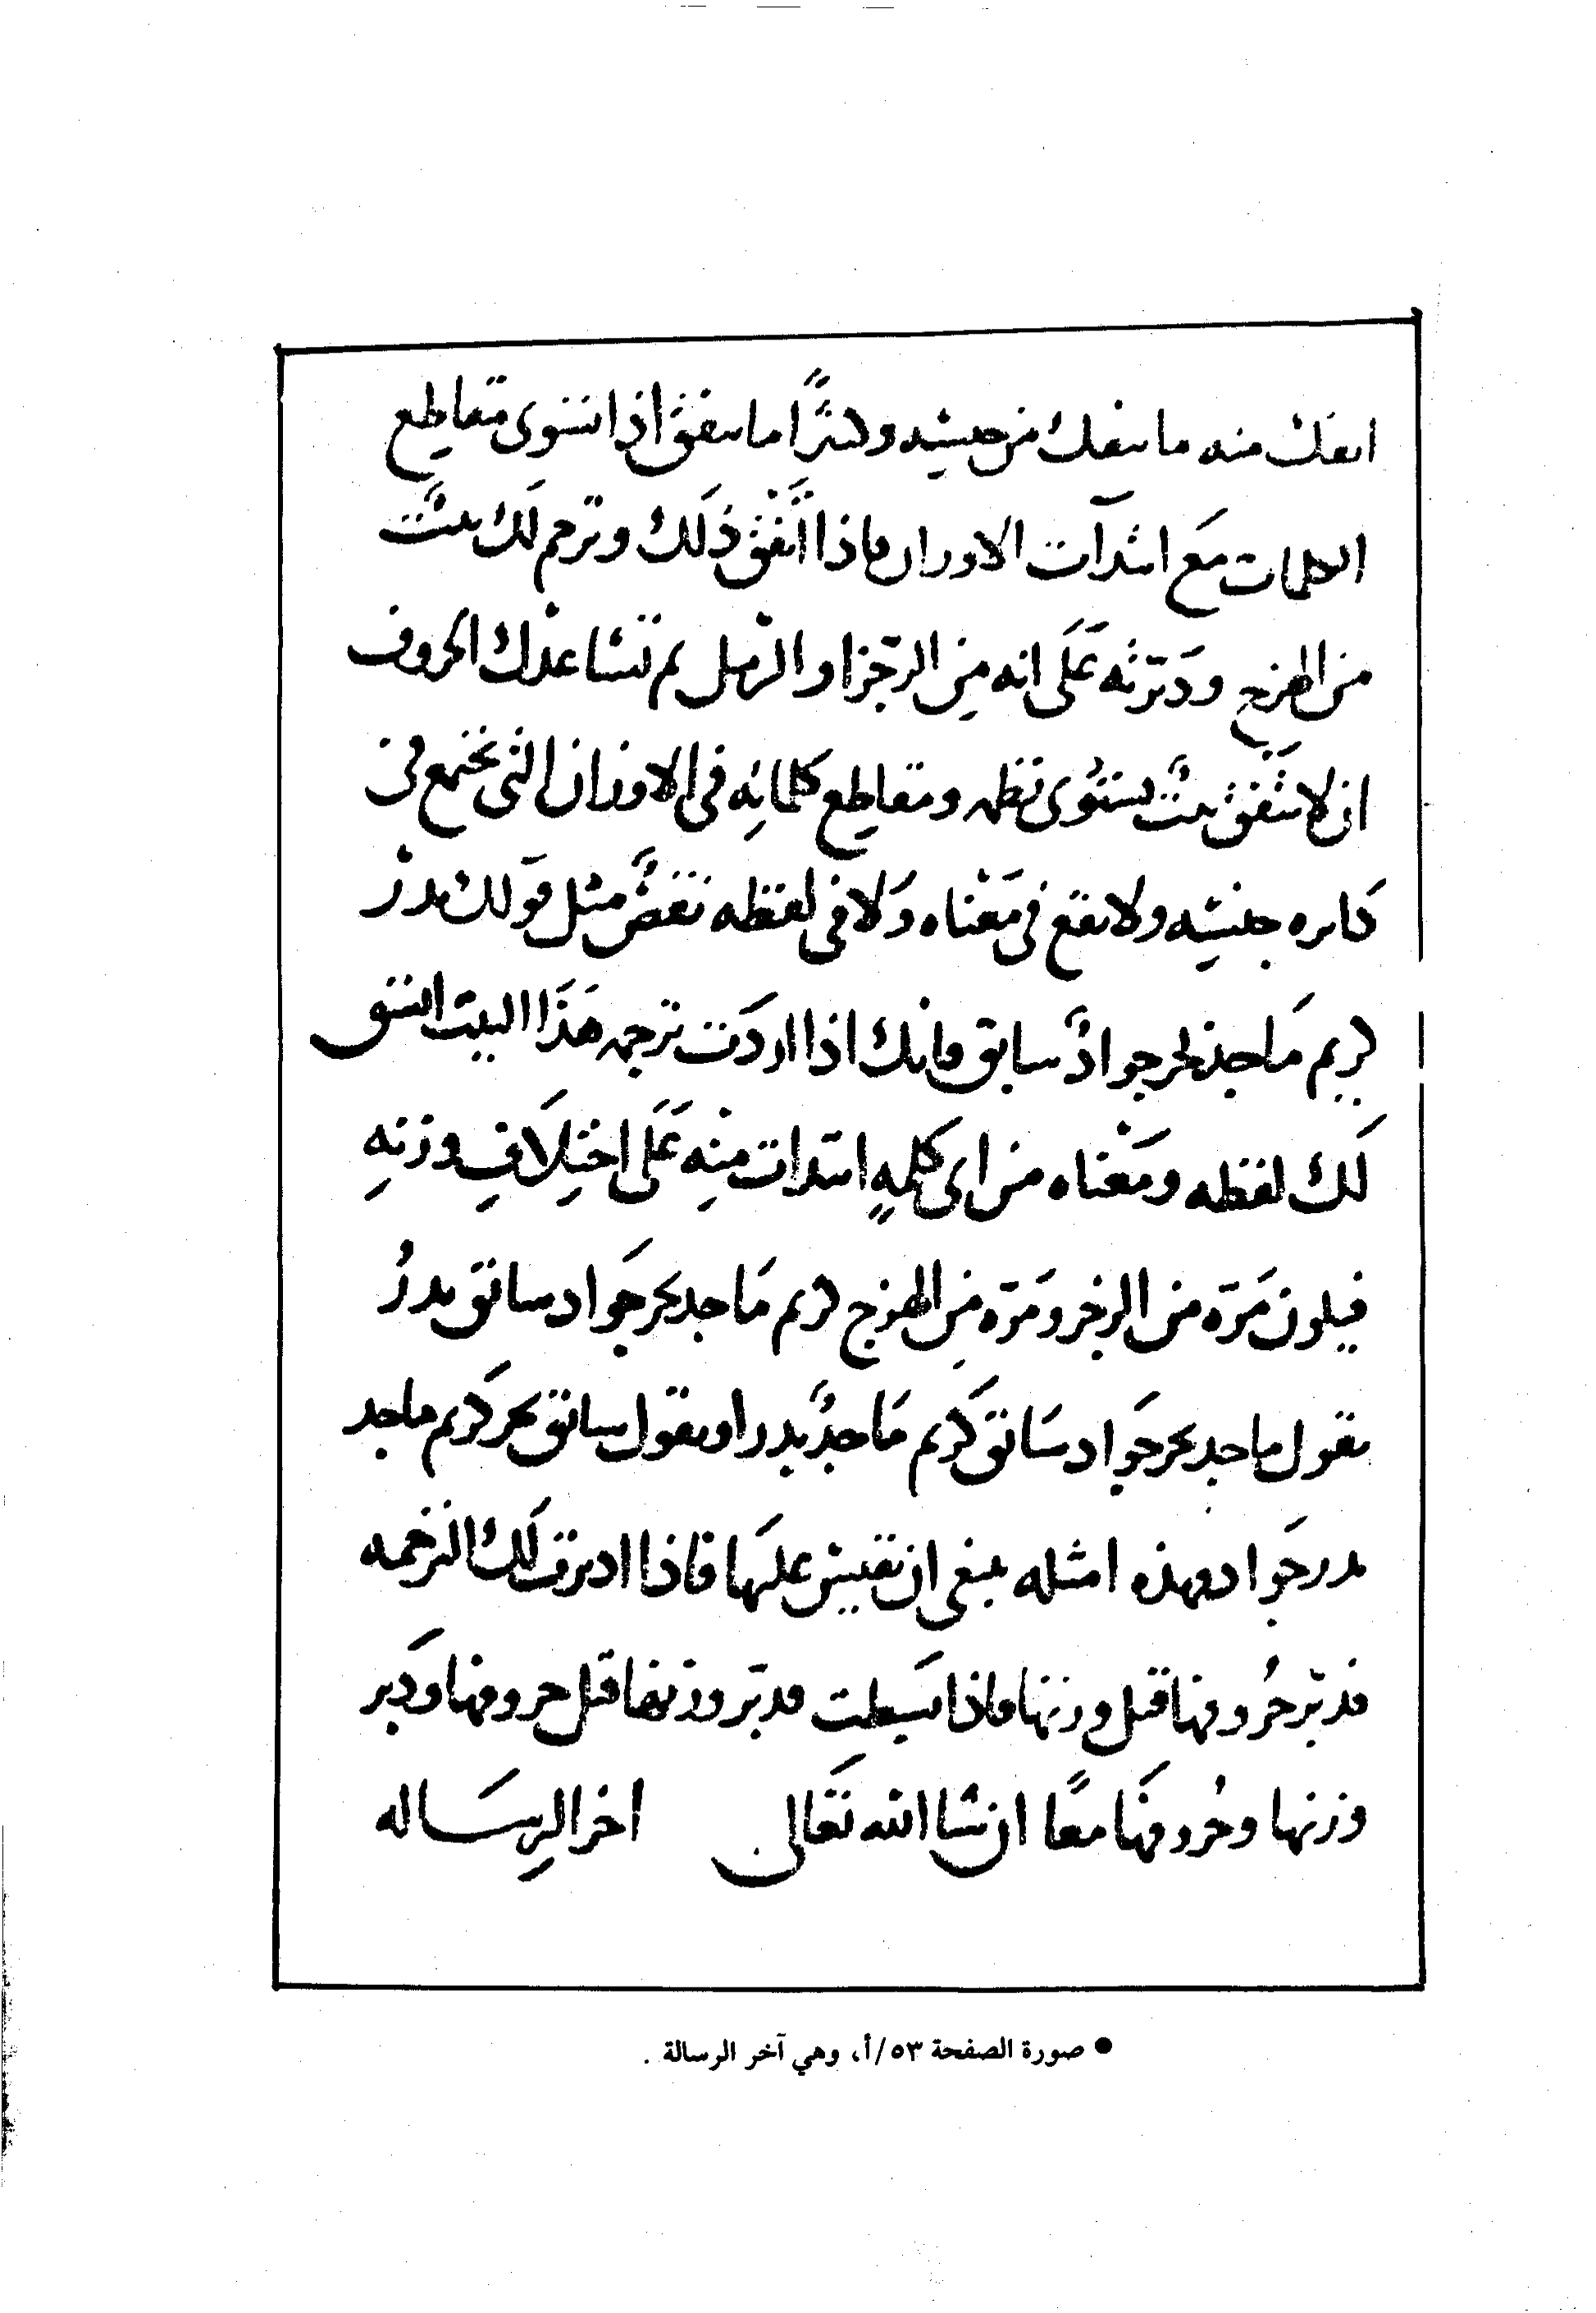 انفك منه ما ينفك من جنسه وكثيرًا ما يتفق اذا استوى مقاطع
الكلمات مع ابتدآت الاوزان فاذا اتفق ذلك وترجم لك بيت
من الهزج ودبرته على انه من الرجز او الرمل لم تساعدك الحروف
ان لا يتفق بيت يستوى نظمه ومقاطع كلماته في الاوزان التي تجتمع في
دايره جنسه ولا يقع في معناه ولا في لفظه نقص مثل قولك بدر
كريم ماجد بحر جواد سابق فانك اذا اردت ترجمه هذا البيت اتسق
لك لفظه ومعناه من اى كلمه ابتدات منه على اختلاف وزنه
فيكون مره من الرجز ومره من الهزج كريم ماجد بحر جواد سابق بدر
تقول ماجد بحر جواد سابق كريم ماجد بدر او تقول سابق بحر كريم ماجد
بدر جواد وهذه امثله ينبغي ان تقيس عليها فاذا اديرت لك الترجمه
فدبر حروفها قبل وزنها فاذا بسطت فدبر وزنها قبل حروفها ودبر
وزنها وحروفها معًا ان شا الله تعالى اخر الرساله
● صورة الصفحة ٥٣/أ، وهي آخر الرسالة .